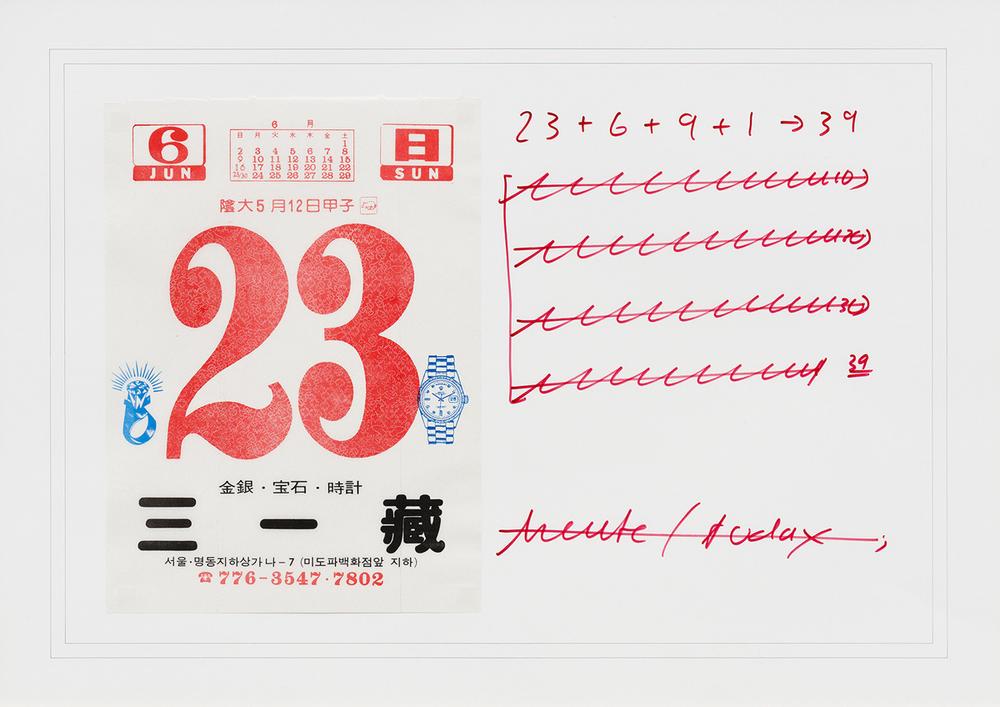 6
JUN
6 月
日 月 火 水 木 金 土
1
2 3 4 5 6 7 8
9 10 11 12 13 14 15
16 17 18 19 20 21 22
23/30 24 25 26 27 28 29
日
SUN
陰大5月12日甲子
23
金銀·宝石·時計
三一藏
서울·명동지하상가나-7 (미도파백화점앞 지하)
☎ 776-3547·7802
23+6+9+1→39
39
heute / today